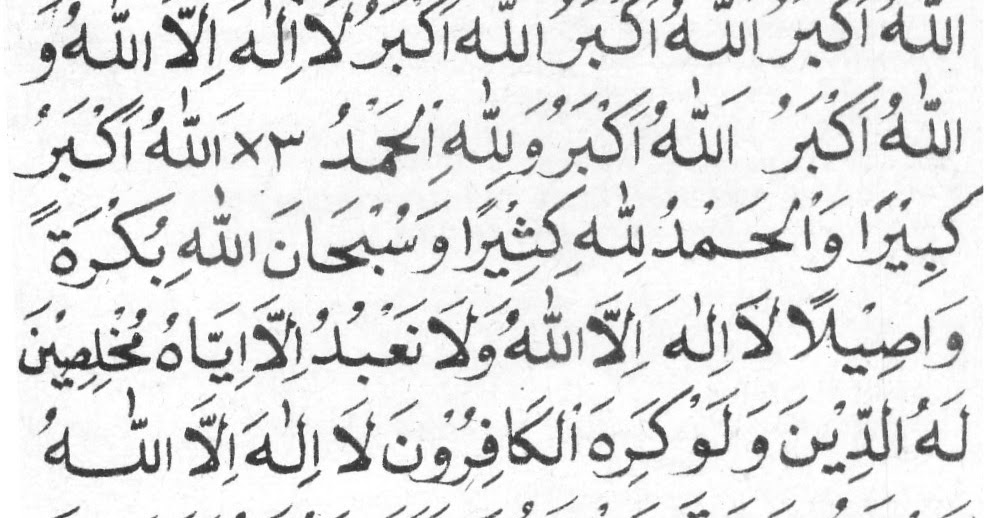 اللّٰهُ اَكْبَرُ اللّٰهُ اَكْبَرُ اللّٰهُ اَكْبَرُ لَا اِلٰهَ اِلَّا اللّٰهُ وَ
اللّٰهُ اَكْبَرُ اَللّٰهُ اَكْبَرُ وَلِلّٰهِ الْحَمْدُ ٣× اَللّٰهُ اَكْبَرْ
كَبِيْرًا وَالْحَمْدُ لِلّٰهِ كَثِيْرًا وَسُبْحَانَ اللّٰهِ بُكْرَةً
وَاَصِيْلًا لَا اِلٰهَ اِلَّا اللّٰهُ وَلَا نَعْبُدُ اِلَّا اِيَّاهُ مُخْلِصِيْنَ
لَهُ الدِّيْنَ وَلَوْ كَرِهَ الْكَافِرُوْنَ لَا اِلٰهَ اِلَّا اللّٰهُ